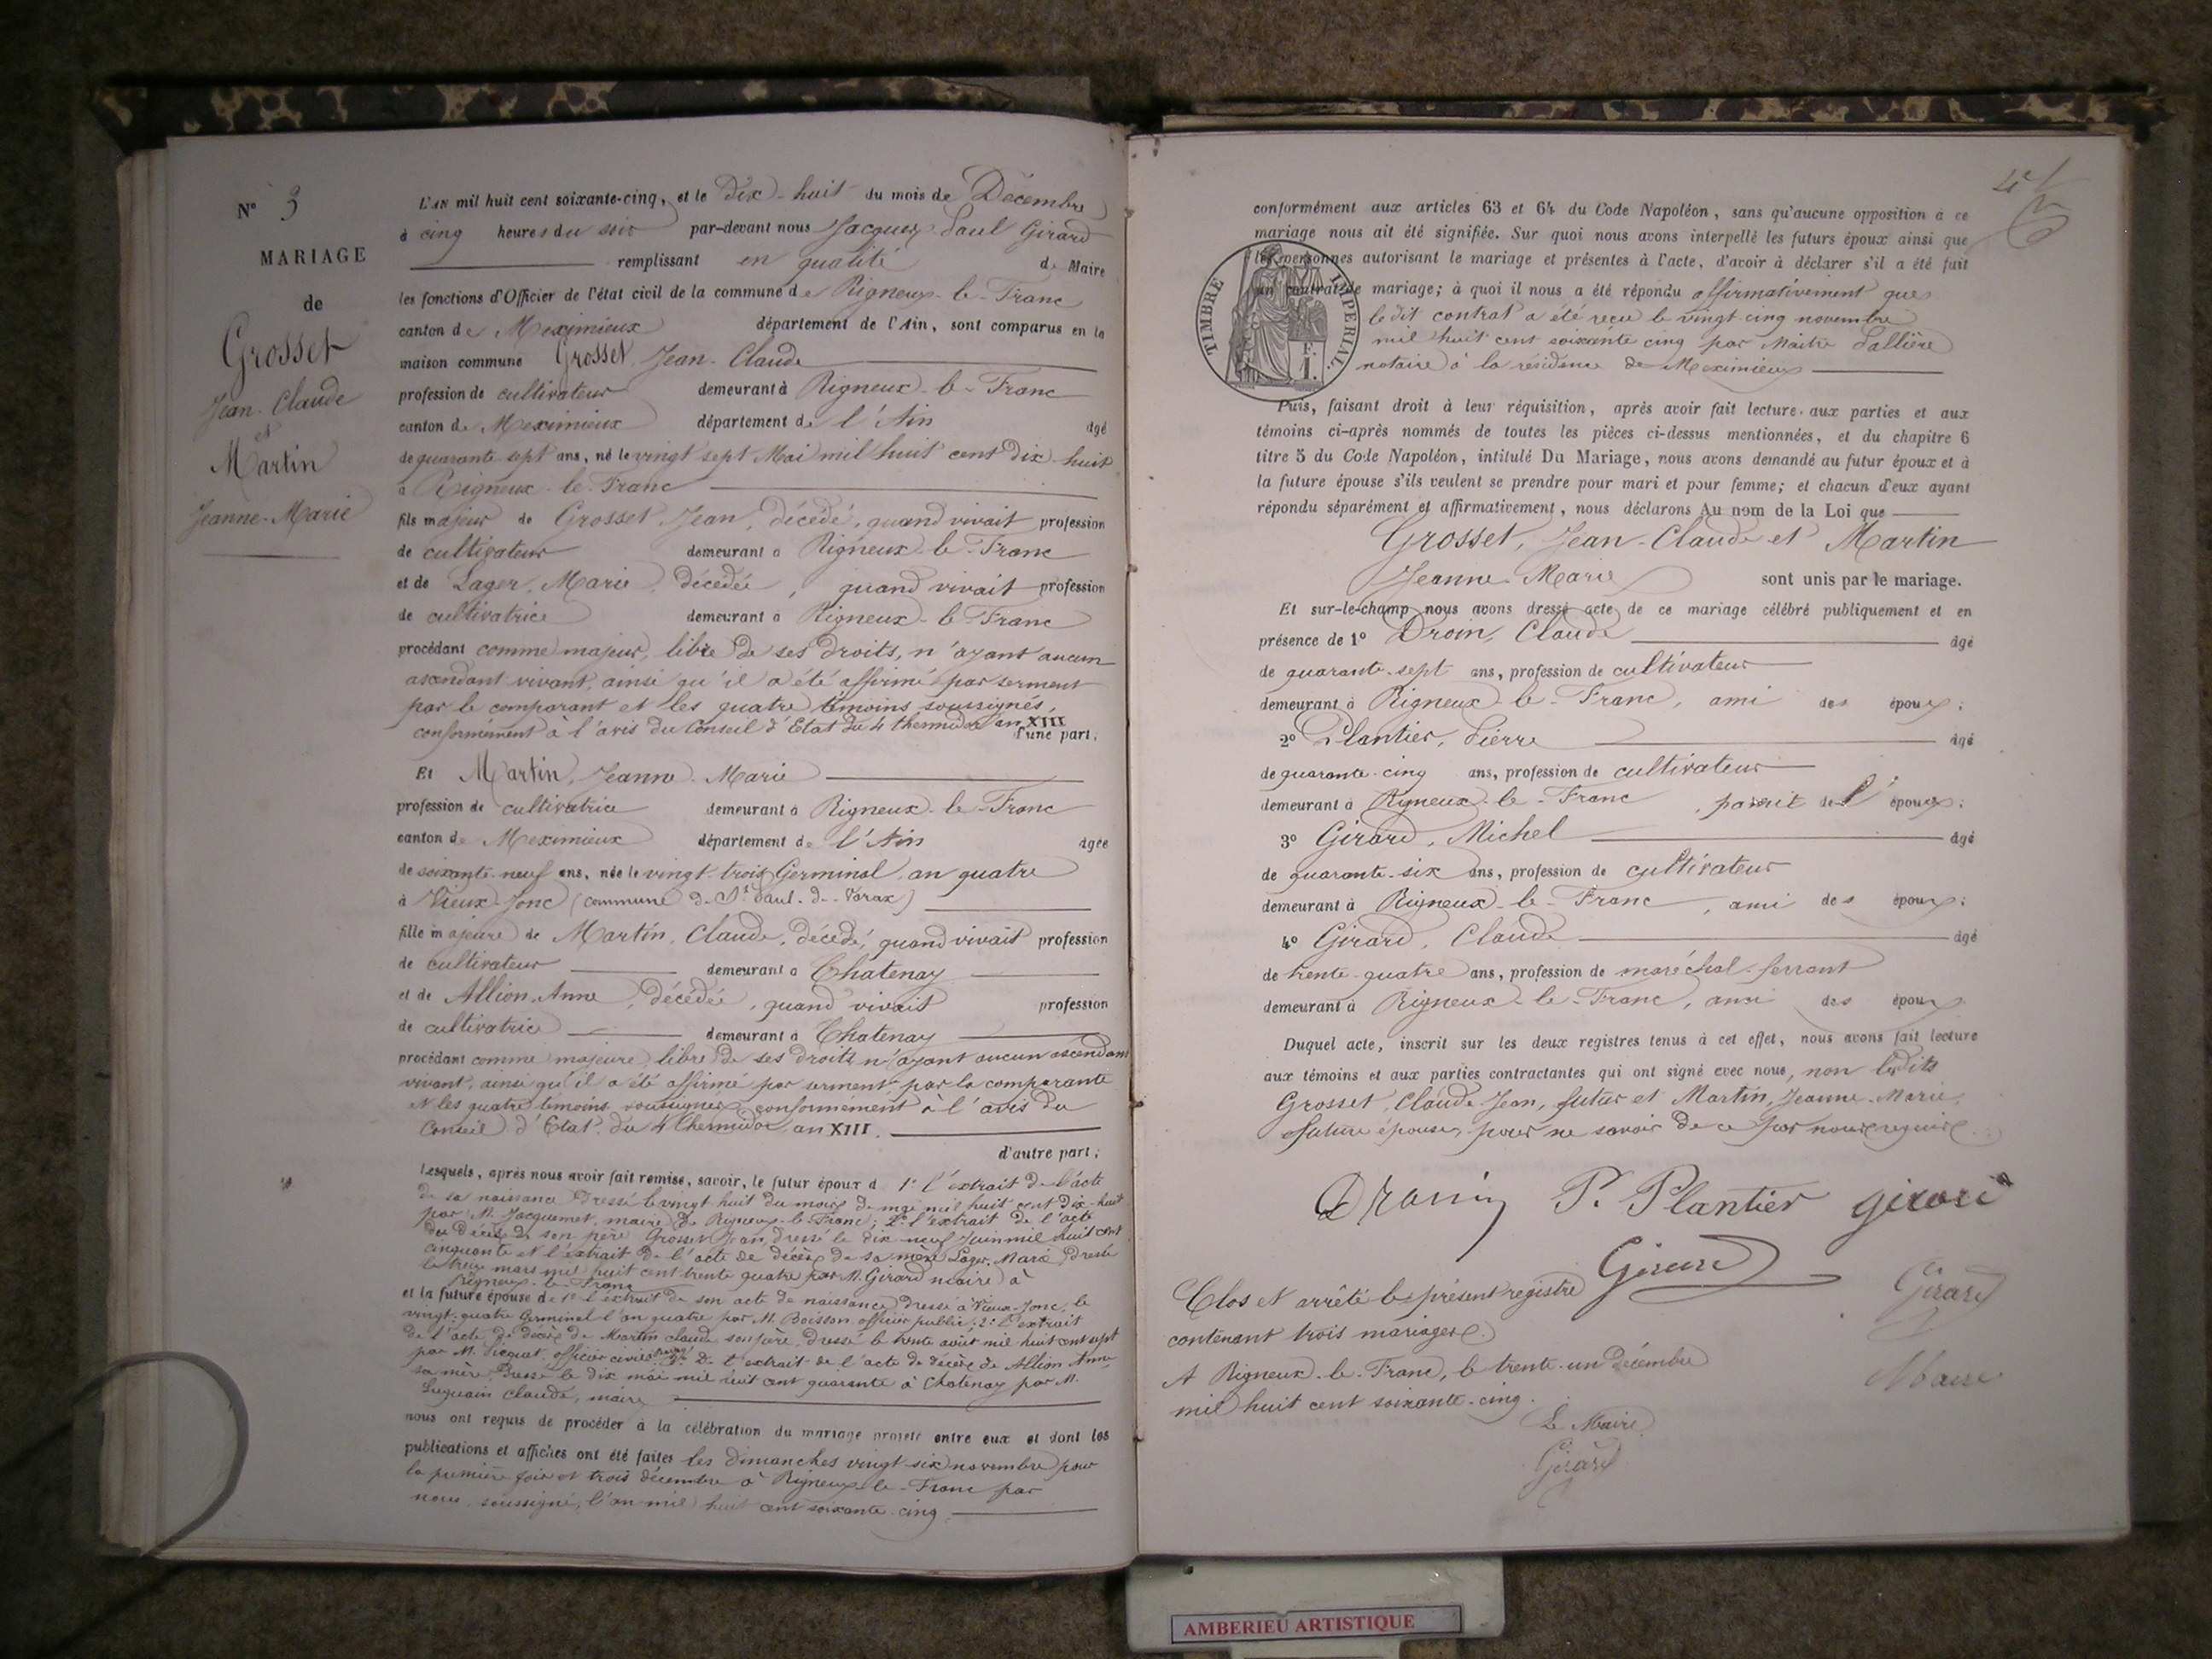 N° 3
MARIAGE
de
Grosset
Jean-Claude
et
Martin
Jeanne-Marie
L'AN mil huit cent soixante-cinq, et le Dix-huit du mois de Décembre
à cinq heures du soir par-devant nous Jacques Paul Girard
remplissant en qualité de Maire
les fonctions d'Officier de l'état civil de la commune de Rigneux-le-Franc
canton de Meximieux département de l'Ain, sont comparus en la
maison commune Grosset, Jean-Claude
profession de cultivateur demeurant à Rigneux-le-Franc
canton de Meximieux département de l'Ain âgé
de quarante-sept ans, né le vingt sept Mai mil huit cent dix-huit
à Rigneux-le-Franc
fils majeur de Grosset Jean, décédé, quand vivait profession
de cultivateur demeurant à Rigneux-le-Franc
et de Lager, Marie, décédée, quand vivait profession
de cultivatrice demeurant à Rigneux-le-Franc
procédant comme majeur, libre de ses droits, n'ayant aucun
ascendant vivant, ainsi qu'il a été affirmé par serment
par le comparant et les quatre témoins soussignés,
conformément à l'avis du Conseil d'Etat du 4 thermidor an XIII
d'une part,
Et Martin, Jeanne-Marie
profession de cultivatrice demeurant à Rigneux-le-Franc
canton de Meximieux département de l'Ain âgée
de soixante-neuf ans, née le vingt-trois Germinal, an quatre
à Vieux-Jonc (commune de St Paul-de-Varax)
fille majeure de Martin, Claude, décédé, quand vivait profession
de cultivateur demeurant à Châtenay
et de Allion, Anne, décédée, quand vivait profession
de cultivatrice demeurant à Chatenay
procédant comme majeure, libre de ses droits, n'ayant aucun ascendant
vivant, ainsi qu'il a été affirmé par serment par la comparante
et les quatre témoins soussignés, conformément à l'avis du
Conseil d'Etat du 4 thermidor an XIII.
d'autre part;
Lesquels, après nous avoir fait remise, savoir, le futur époux d 1° l'extrait de l'acte
de sa naissance dressé le vingt huit du mois de mai mil huit cent dix-huit
par M. Jacquemet, maire de Rigneux-le-Franc; 2° l'extrait de l'acte
du décès de son père Grosset Jean, dressé le dix neuf Juin mil huit cent
cinquante et l'extrait de l'acte de décès de sa mère Lager, Marie, dressé
le treize mars mil huit cent trente quatre par M. Girard maire à
Rigneux-le-Franc
et la future épouse de 1° l'extrait de son acte de naissance dressé à Vieux-Jonc, le
vingt-quatre Germinal l'an quatre par M. Boisson officier public; 2° l'extrait
de l'acte de décès de Martin Claude son père, dressé le trente août mil huit cent sept
par M. officier civil 3° de l'extrait de l'acte de décès de Allion Anne
sa mère, dressé le dix mai mil huit cent quarante à Chatenay par M.
Claude, maire
nous ont requis de procéder à la célébration du mariage projeté entre eux et dont les
publications et affiches ont été faites les dimanches vingt-six novembre pour
la première fois et trois décembre à Rigneux-le-Franc par
nous, soussigné, l'an mil huit cent soixante-cinq
conformément aux articles 63 et 64 du Code Napoléon, sans qu'aucune opposition à ce
mariage nous ait été signifiée. Sur quoi nous avons interpellé les futurs époux ainsi que
les personnes autorisant le mariage et présentes à l'acte, d'avoir à déclarer s'il a été fait
un contrat de mariage; à quoi il nous a été répondu affirmativement que
le dit contrat a été reçu le vingt-cinq novembre
mil huit cent soixante cinq par Maître Pallière
notaire à la résidence de Meximieux
TIMBRE IMPERIAL.
F.
1.
Puis, faisant droit à leur réquisition, après avoir fait lecture aux parties et aux
témoins ci-après nommés de toutes les pièces ci-dessus mentionnées, et du chapitre 6
titre 5 du Code Napoléon, intitulé Du Mariage, nous avons demandé au futur époux et à
la future épouse s'ils veulent se prendre pour mari et pour femme; et chacun d'eux ayant
répondu séparément et affirmativement, nous déclarons Au nom de la Loi que
Grosset, Jean-Claude et Martin
Jeanne-Marie sont unis par le mariage.
Et sur-le-champ nous avons dressé acte de ce mariage célébré publiquement et en
présence de 1° Droin, Claude âgé
de quarante-sept ans, profession de cultivateur
demeurant à Rigneux-le-Franc, ami des époux;
2° Plantier, Pierre âgé
de quarante-cinq ans, profession de cultivateur
demeurant à Rigneux-le-Franc, parent de l'époux;
3° Girard, Michel âgé
de quarante-six ans, profession de cultivateur
demeurant à Rigneux-le-Franc, ami des époux;
4° Girard, Claude âgé
de trente-quatre ans, profession de maréchal-ferrant
demeurant à Rigneux-le-Franc, ami des époux
Duquel acte, inscrit sur les deux registres tenus à cet effet, nous avons fait lecture
aux témoins et aux parties contractantes qui ont signé avec nous, non lesdits
Grosset, Claude-Jean, futur et Martin, Jeanne-Marie,
future épouse, pour ne savoir de ce par nous requis
Drouin P. Plantier girard
Girard
Girard
Maire
Clos et arrêté le présent registre
contenant trois mariages.
A Rigneux-le-Franc, le trente-un Décembre
mil huit cent soixante-cinq.
Le Maire
Girard
AMBERIEU ARTISTIQUE